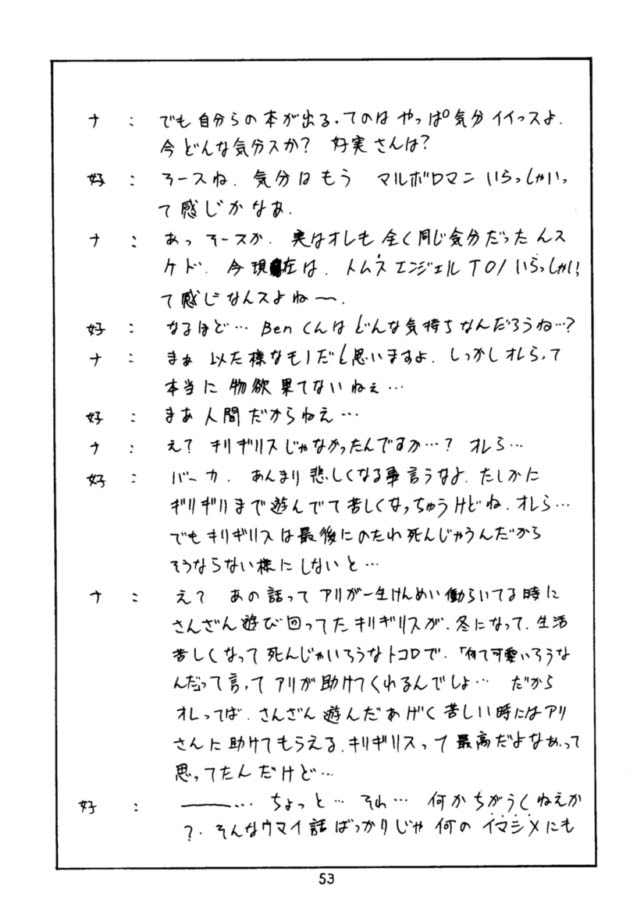 ナ : でも自分らの本が出る。てのは やっぱ気分イイっスよ.
今どんな気分スか? 好実さんは?
好 : そースね. 気分はもう マルボロマン いらっしゃいっ
て感じかなあ.
ナ : あっ そースか. 実はオレも 全く同じ気分だったんス
ケド. 今現在は. トムネエンジェル TOノいらっしゃいっ
て感じなんスよねー.
好 : なるほど… Benくんは どんな気持ちなんだろうね…?
ナ : まぁ 似た様なモノだと思いますよ. しっかしオレらって
本当に 物欲果てないねぇ…
好 : まあ人間だからねえ…
ナ : え? キリギリスじゃなかったんですか…? オレら…
好 : バーカ. あんまり 悲しくなる事言うなよ. たしかに
ギリギリまで遊んでて苦しくなっちゃうけどね. オレら…
でもキリギリスは最後にのたれ死んじゃうんだから
そうならない様にしないと…
ナ : え? あの話って アリが一生けんめい働らいてる時に
さんざん遊び回ってたキリギリスが. 冬になって. 生活
苦しくなって死んじゃいそうなトコロで.「何て可愛いそうな
んだ」って言ってアリが助けてくれるんでしょ… だから
オレってば. さんざん遊んだあげく苦しい時にはアリ
さんに助けてもらえる. キリギリスって最高だよなぁって
思ってたんだけど…
好 : ――… ちょっと… それ… 何かちがうくねえか
?. そんなウマイ話ばっかりじゃ 何のイマシメにも
53